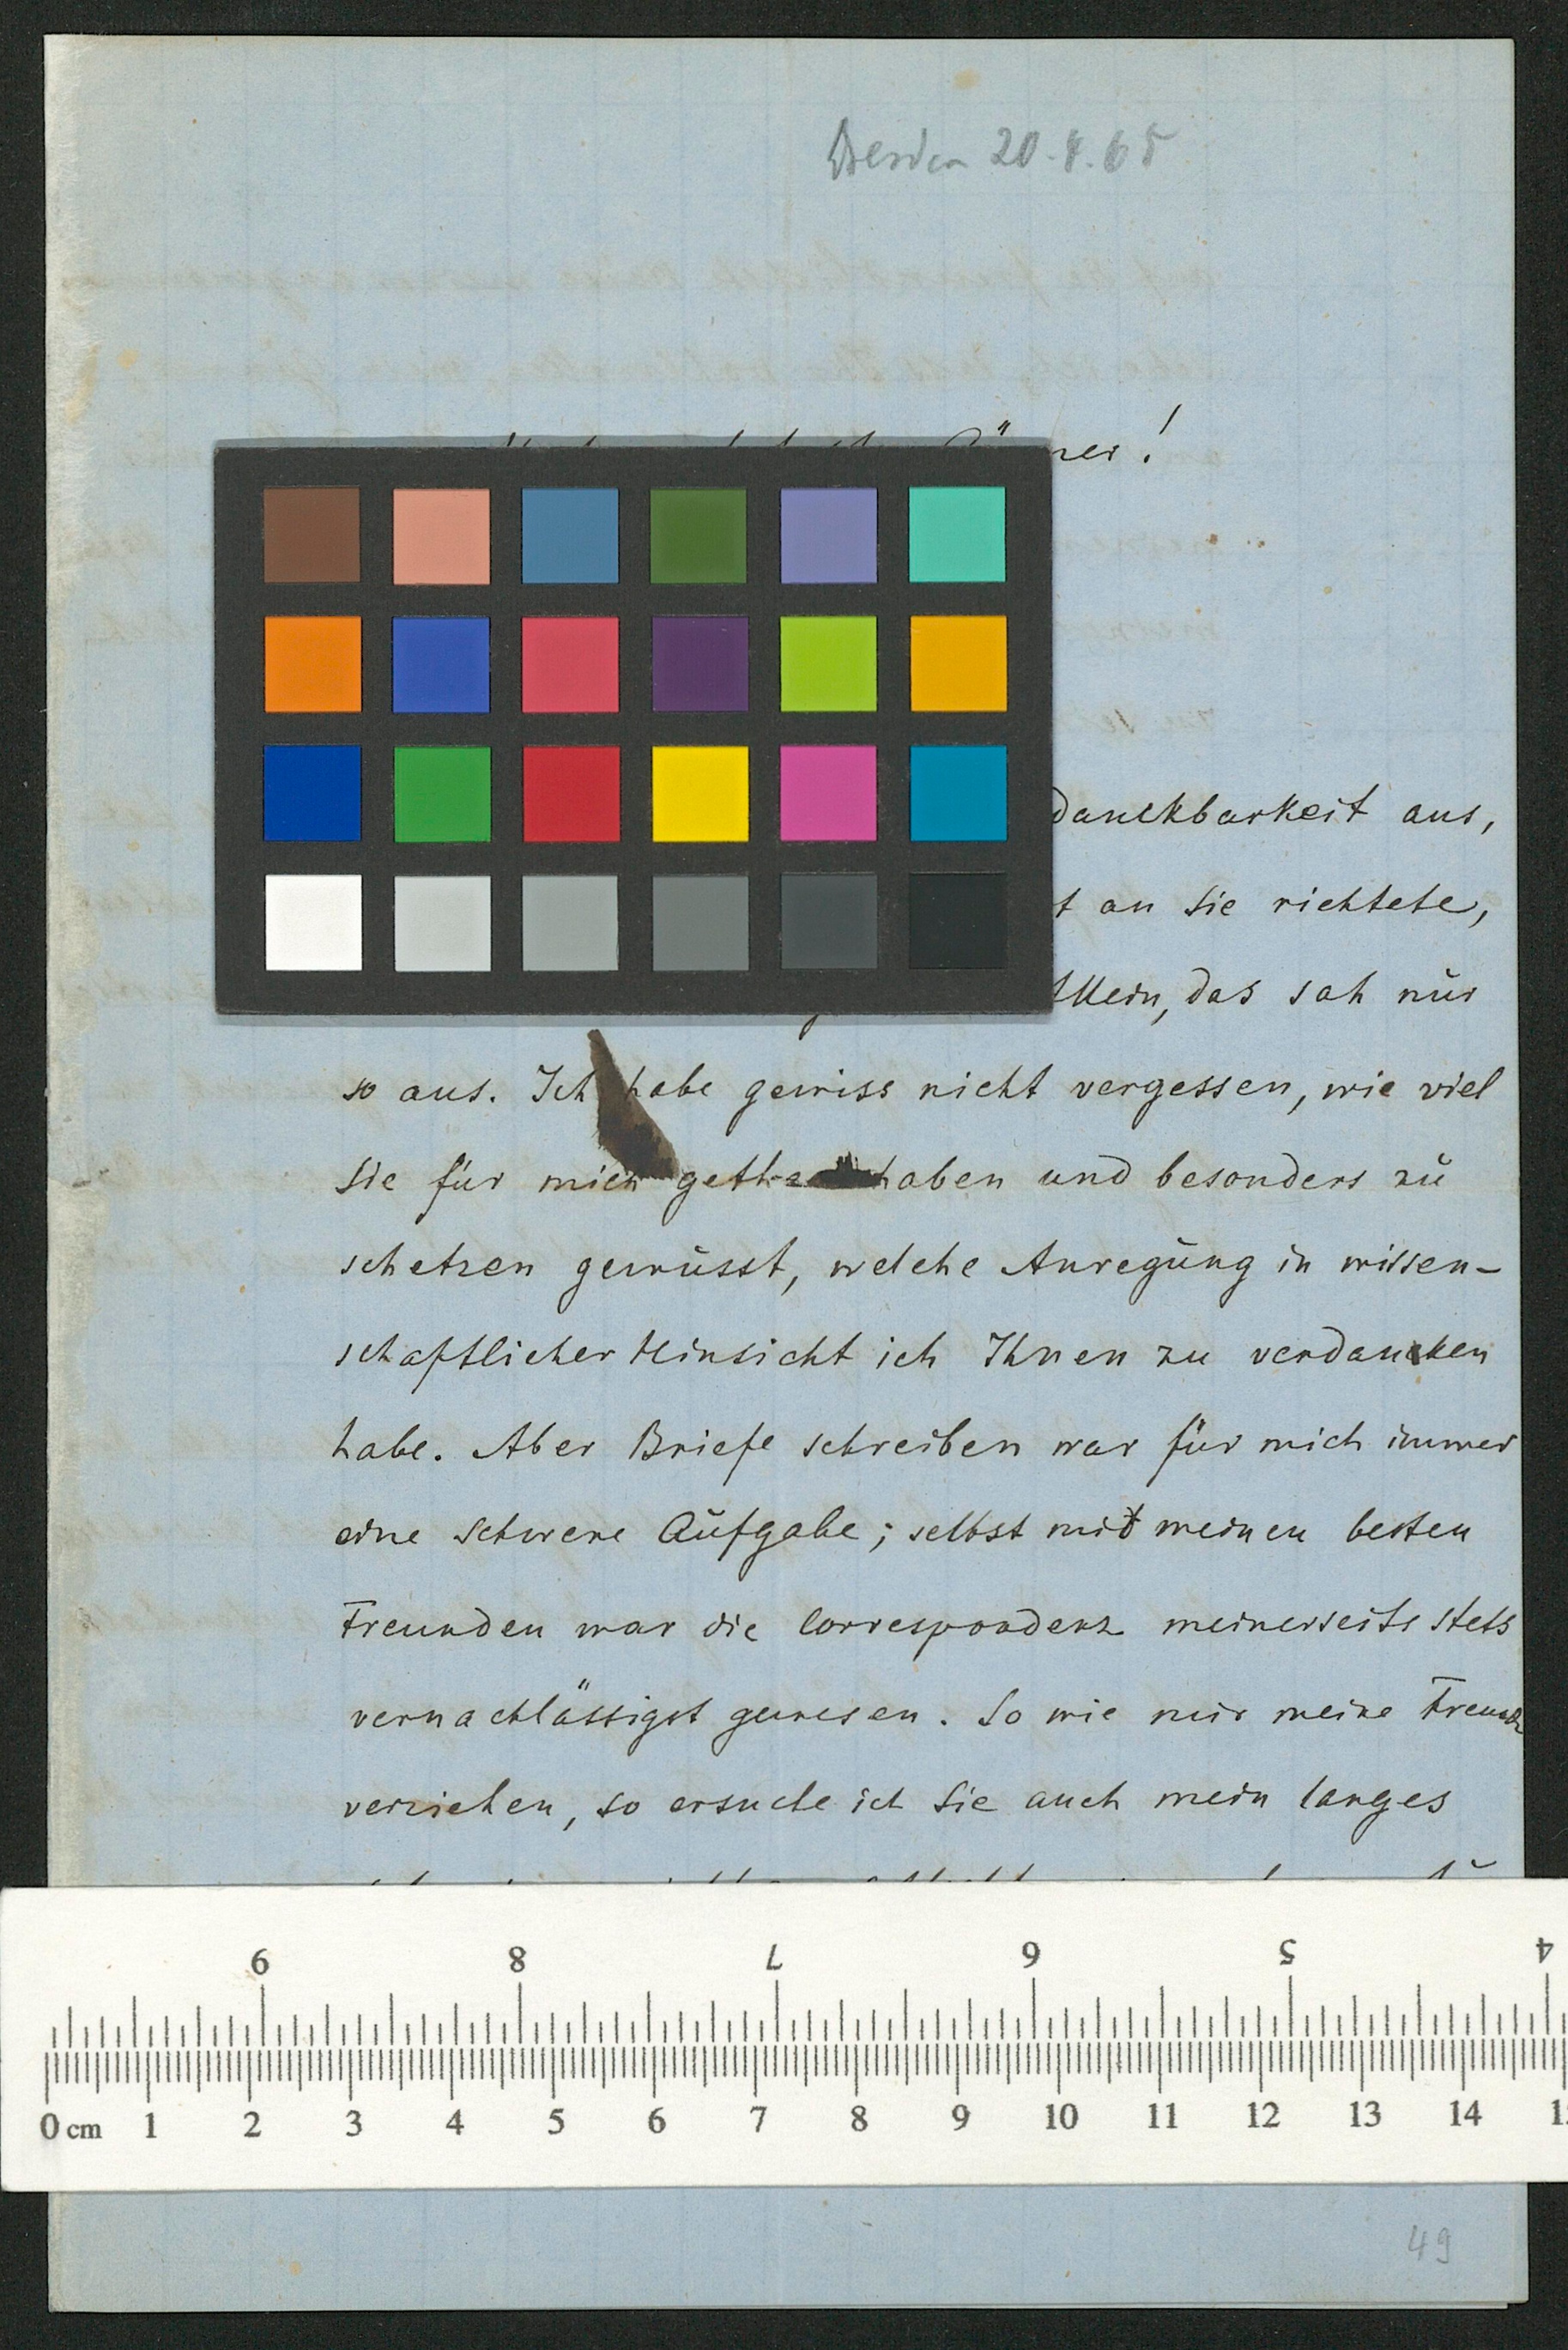 Dresden 20.4.65
danckbarkeit aus,
an Sie richtete,
das sah nŭr
so aus. Ich habe gewiss nicht vergessen, wie viel
Sie für mich haben und besonders zŭ
schetzen gewŭsst, welche Anregŭng in wissen-
schaftlicher Hinsicht ich Ihnen zu verdancken
habe. Aber Briefe schreiben war für mich immer
eine schwere Aŭfgabe; selbst mit meinen besten
Freunden war die Correspondenz meinerseits stets
vernachlässigt gewesen. So wie mir meine Freunde
verziehen, so ersuche ich Sie auch mein langes
9 8 7 6 5 4
0 cm 1 2 3 4 5 6 7 8 9 10 11 12 13 14
49